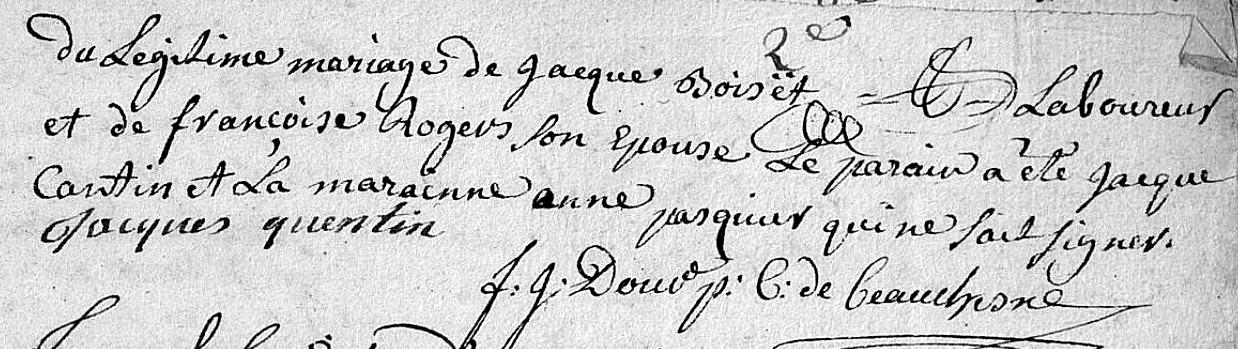 du Legitime mariage de Jacque Boisët Laboureur
et de françoise Rogers son Epouse Le parain a été Jacque
Cantin et La marainne anne pasquier qui ne sait signer.
Jacques quentin
f: J: Douv p: C: de beauchesne